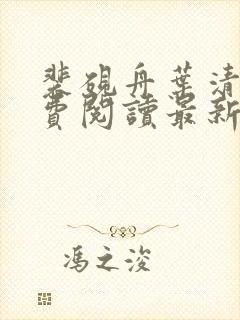 裴硯舟葉清
費閱讀最新
馮之浚